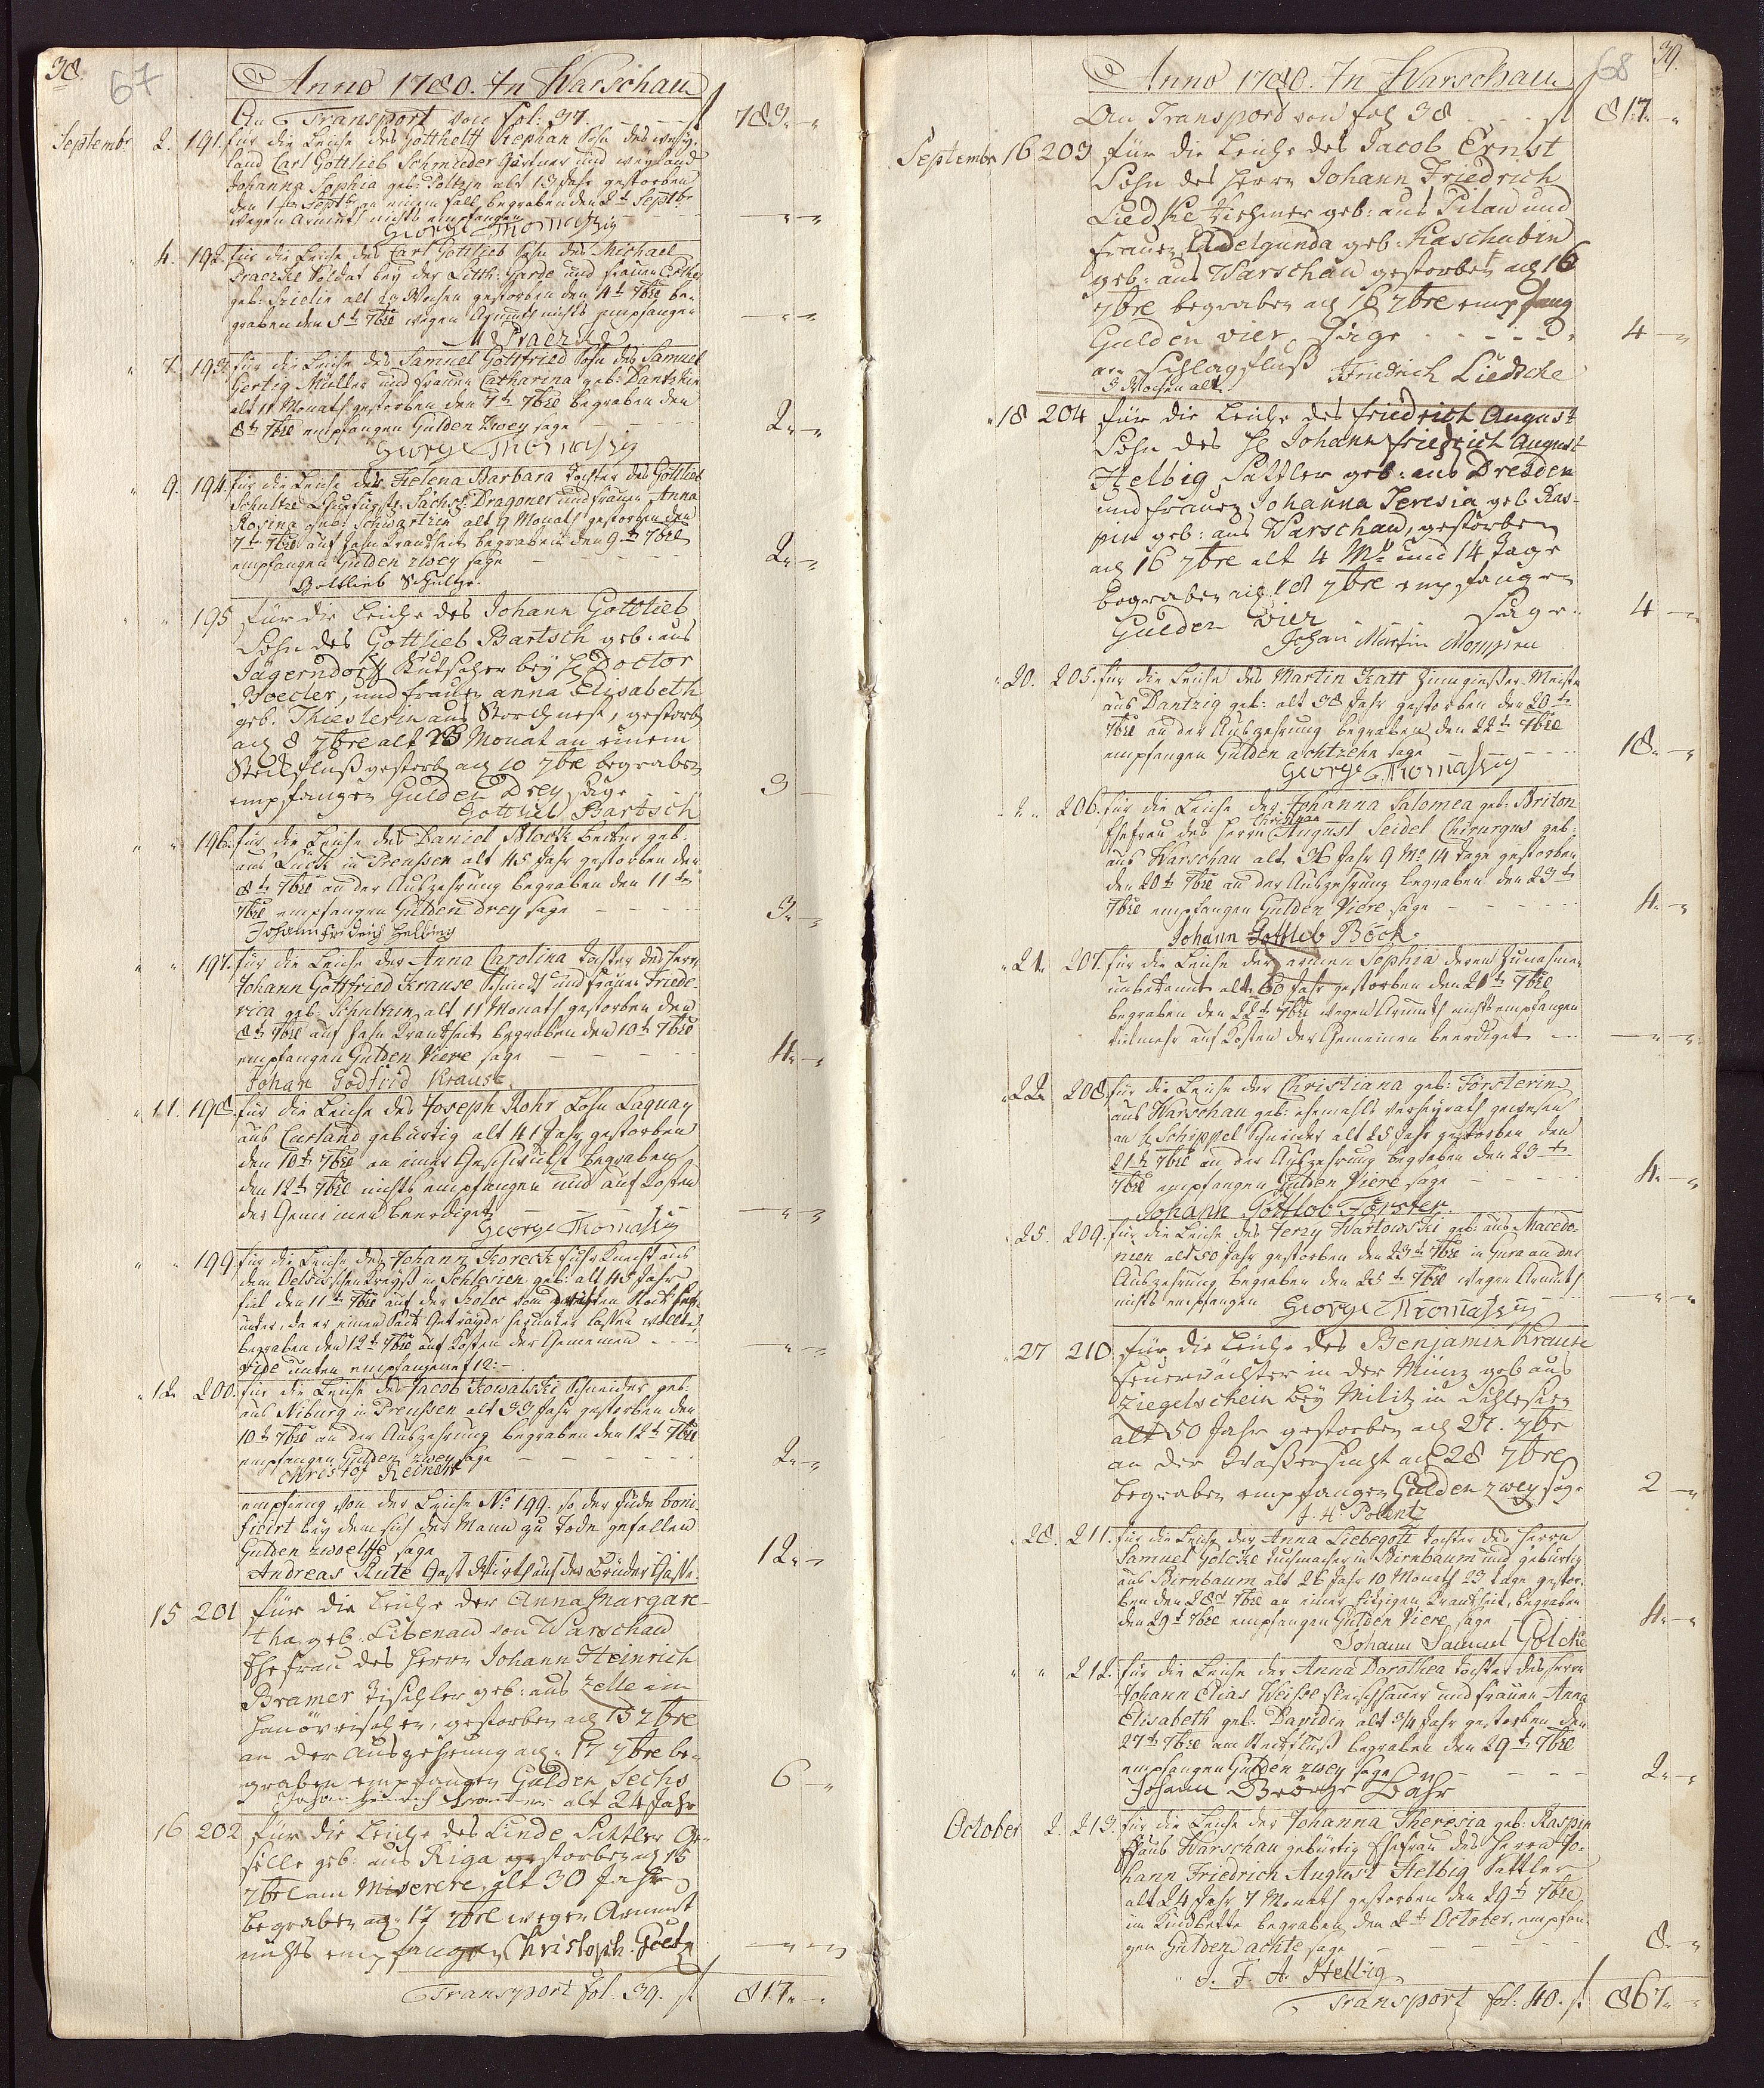 38.
67
Anno 1780. In Warschau
An Transport von fol: 37. — — — fl 783.–„
Septembr. 2. 191. für die Leiche des Gotthelff Stephan Sohn des wehy-
land Carl Gottlieb Schmieder Gärtner und weyland
Johanna Sophia geb: Poltzin alt 13 Jahr gestorben
den 1ten Septbr an einem fall, begraben den 2t Septbr
wegen Armuth nichts empfangen — „ —
George Thomaszig
„ 4. 192. für die Leiche des Carl Gottlieb Sohn des Michael
Praezke Soldat bey der Litth: Garde und Frauen Esther
geb: alt 29 Wochen gestorben den 4t 7bre be-
graben den 5t 7bre wegen Armuth nichts empfangen — „ —
M Praezke
„ 7. 193. für die Leiche des Samuel Gottfried Sohn des Samuel
Gertig Müller und Frauen Catharina geb: Dantzkin
alt 11 Monath gestorben den 7th 7bre begraben den
8th 7bre empfangen Gulden Zwey sage — — — 2„ –„
George Thomaszig
„ 9. 194. für die Leiche der Helena Barbara Tochter des Gottlieb
Schultze Churfürstl: Sächs: Dragoner und frauen Anna
Rosina geb: Schwartzin alt 9 Monath gestorben den
7th 7bre auf Zahn Krankheit begraben den 9th 7bre
empfangen Gulden zwey sage — — — 2„ –„
Gottlieb Schultze.
„ „ 195 für die Leiche des Johann Gottlieb
Sohn des Gottlieb Bartsch geb: aus
Jägerndorff Kutscher bey H Doctor
Boecler, und Frauen anna Elisabeth
geb. Thieslerin aus Storchnest, gestorb
ad 8 7bre alt 23 Monat an einem
Steckfluß gestorb ad 10 7bre begraben
empfangen Gulden Drey sage 3 –
Gottlieb Bartsch
„ „ 196. für die Leiche des Daniel Mock geb.
aus Lück in Preussen alt 45 Jahr gestorben den
8th 7bre an der Auszehrung begraben den 11ten
7bre empfangen Gulden drey sage — — — 3„ –„
Johann Fridrich Helbing
„ „ 197. für die Leiche der Anna Carolina Tochter des Herrn
Johann Gottfried Krause Schmidt und frauen Friede-
rica geb: Schultzin alt 11 Monath gestorben den
8th 7bre auf Zahn Krankheit begraben den 10th 7bre
empfangen Gulden Viere sage — — — 4„ –„
Johan Godfrid Krause.
„ 11. 198. für die Leiche des Joseph Rohr Lohn Laquay
aus Curland gebürtig alt 41 Jahr gestorben
den 10th 7bre an einer Geschwulst begraben
den 12th 7bre nichts empfangen und auf Kosten
der Gemeinen beerdiget — — — — „ –„
George Thomaszig
„ „ 199 für die Leiche des Johann Skoreck Knecht aus
dem Oelsischen Creyß in Schlesien geb: alt 45 Jahr
fiel den 11th 7bre auf der Solec vom Stock her-
unter, da er einen Sack Getrayde herunter lassen wollte,
begraben den 12th 7bre auf Kosten der Gemeinen — — „ –„
vide unten empfangene f 12:–
„ 12. 200. für die Leiche des Jacob Kowalski Schneider geb.
aus Niburg in Preussen alt 33 Jahr gestorben den
10th 7bre an der Auszehrung begraben den 12th 7bre
empfangen Gulden zwey sage — — — 2„ –„
Christof Reinert
empfieng von der Leiche No 199. so der Jude boni-
ficirt bey dem sich der Mann zu Tode gefallen
Gulden zwoelffe sage 12„ –
Andreas Rute Gast Wirth auf der Brüder Gasse.
15 201 für die Leiche der Anna Margare-
tha geb: Libenau von Warschau
Ehefrau des Herrn Johann Heinrich
Bramer Tischler geb: aus Zelle im
Hanöverischen, gestorben ad 15 7bre
an der Auszehrung ad: 17 7bre be-
graben empfangen Gulden Sechs 6 –„
Johan Heinrich Bramer alt 24 Jahr
16 202 für die Leiche des Linde Sattler Ge-
selle geb: aus Riga gestorben ad 15
7bre am Miserere, alt 30 Jahr
begraben ad: 17 7bre wegen Armut
nichts empfangen Christoph. Goetz — „ –„
Transport fol. 39. fl 817„ –
39.
68
Anno 1780. In Warschau
An Transpord von fol 38 . . . fl 817„ –„
Septembr 16 203 für die Leiche des Jacob Ernst
Sohn des Herrn Johann Friedrich
Liedtke geb: aus Pilau und
frauen Adelgunda geb: Kaschubin
geb: aus Warschau gestorben ad 16
7bre begraben ad 16 7bre empfang
Gulden vier, sage . . . . 4 –„
am Schlagfluß Friedrich Liedtche
3 Wochen alt
„ 18 204 für die Leiche des friedrich August
Sohn des H Johann friedrich August
Helbig, Sattler geb: aus Dresden
und Frauen Johanna Teresia geb. Kas-
pin geb: aus Warschau, gestorben
ad 16 7bre alt 4 Mo und 14 Tage
begraben ad 18 7bre empfangen
Gulden vier sage: 4 –„
Johan Martin Mompsen
„ 20. 205. für die Leiche des Martin Katt Zinngießer-Meister
aus Dantzig geb: alt 38 Jahr gestorben den 20te
7bre an der Auszehrung begraben den 22t 7bre
empfangen Gulden achtzehn sage — — 18„ –„
George Thomaszig
„ „ 206. für die Leiche der Johanna Salomea geb: Briton
Christian
Ehefrau des Herrn August Seidel Chirurgus geb:
aus Warschau alt 36 Jahr 9 Mo 14 Tage gestorben
den 20t 7bre an der Auszehrung begraben den 23th
7bre empfangen Gulden Viere sage — — — 4„ –„
Johann Gottlieb Böck.
„ 21. 207. für die Leiche der armen Sophia deren Zunahme
unbekannt alt 60 Jahr gestorben den 21t 7bre
begraben den 22t 7bre wegen Armuth nichts empfangen
vielmehr auf Kosten der Gemeinen beerdiget — — „ –„
„ 22. 208. für die Leiche der Christiana geb: Försterin
aus Warschau geb: ehemahls verheyrath gewesen
an H Schippel Schneider alt 25 Jahr gestorben den
21th 7bre an der Auszehrung begraben den 23th
7bre empfangen Gulden Viere sage — — — 4„ –„
Johann Gottlob Förster.
„ 25. 209. für die Leiche des Jerzy Wartowski geb: aus Macedo-
nien alt 50 Jahr gestorben den 23th 7bre in Gura an der
Auszehrung begraben den 25th 7bre wegen Armuth
nichts empfangen George Thomaszig — „ –„
„ 27 210 für die Leiche des Benjamin Krause
feuerwächter in der Müntz geb aus
Ziegelschein bey Militz in Schlesien
alt 50 Jahr gestorben ad 27. 7br
an der Waßersucht ad 28 7bre
begraben empfangen Gulden zwey sage 2 –„
J. H. Polentz
„ 28. 211. für die Leiche der Anna Liebegott Tochter des Herrn
Samuel Golcke Tuchmacher in Birnbaum und gebürtig
aus Birnbaum alt 26 Jahr 10 Monath 23 Tage gestor-
ben den 28t 7bre an einer hitzigen Krankheit, begraben
den 29t 7bre empfangen Gulden Viere sage — 4„ –„
Johann Samuel Golcke
„ „ 212. für die Leiche der Anna Dorothea Tochter des Herrn
Johann Elias Weisse fleischhauer und frauen Anna
Elisabeth geb: Davidin alt 3/4 Jahr gestorben den
27th 7bre am Steckfluß begraben den 29th 7bre
empfangen Gulden zwey sage — — — 2„ –„
Johann George Bähr
October 2. 213. für die Leiche der Johanna Theresia geb: Kaspin
aus Warschau gebürtig Ehefrau des Herrn Jo-
hann Friedrich August Helbig Sattler
alt 24 Jahr 7 Monath gestorben den 29t 7bre
im Kindbette begraben den 2t October. empfan-
gen Gulden achte sage — — — 8„ –„
J. F. A. Helbig
Transport fol: 40. fl 867„ –